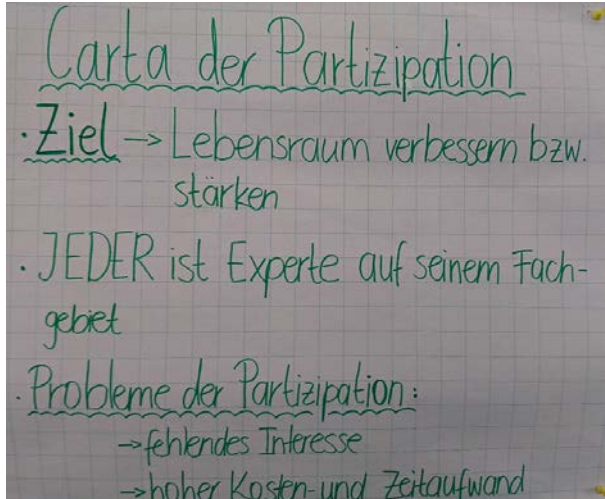 Carta der Partizipation
· Ziel → Lebensraum verbessern bzw.
stärken
· JEDER ist Experte auf seinem Fach-
gebiet
· Probleme der Partizipation:
→ fehlendes Interesse
→ hoher Kosten- und Zeitaufwand